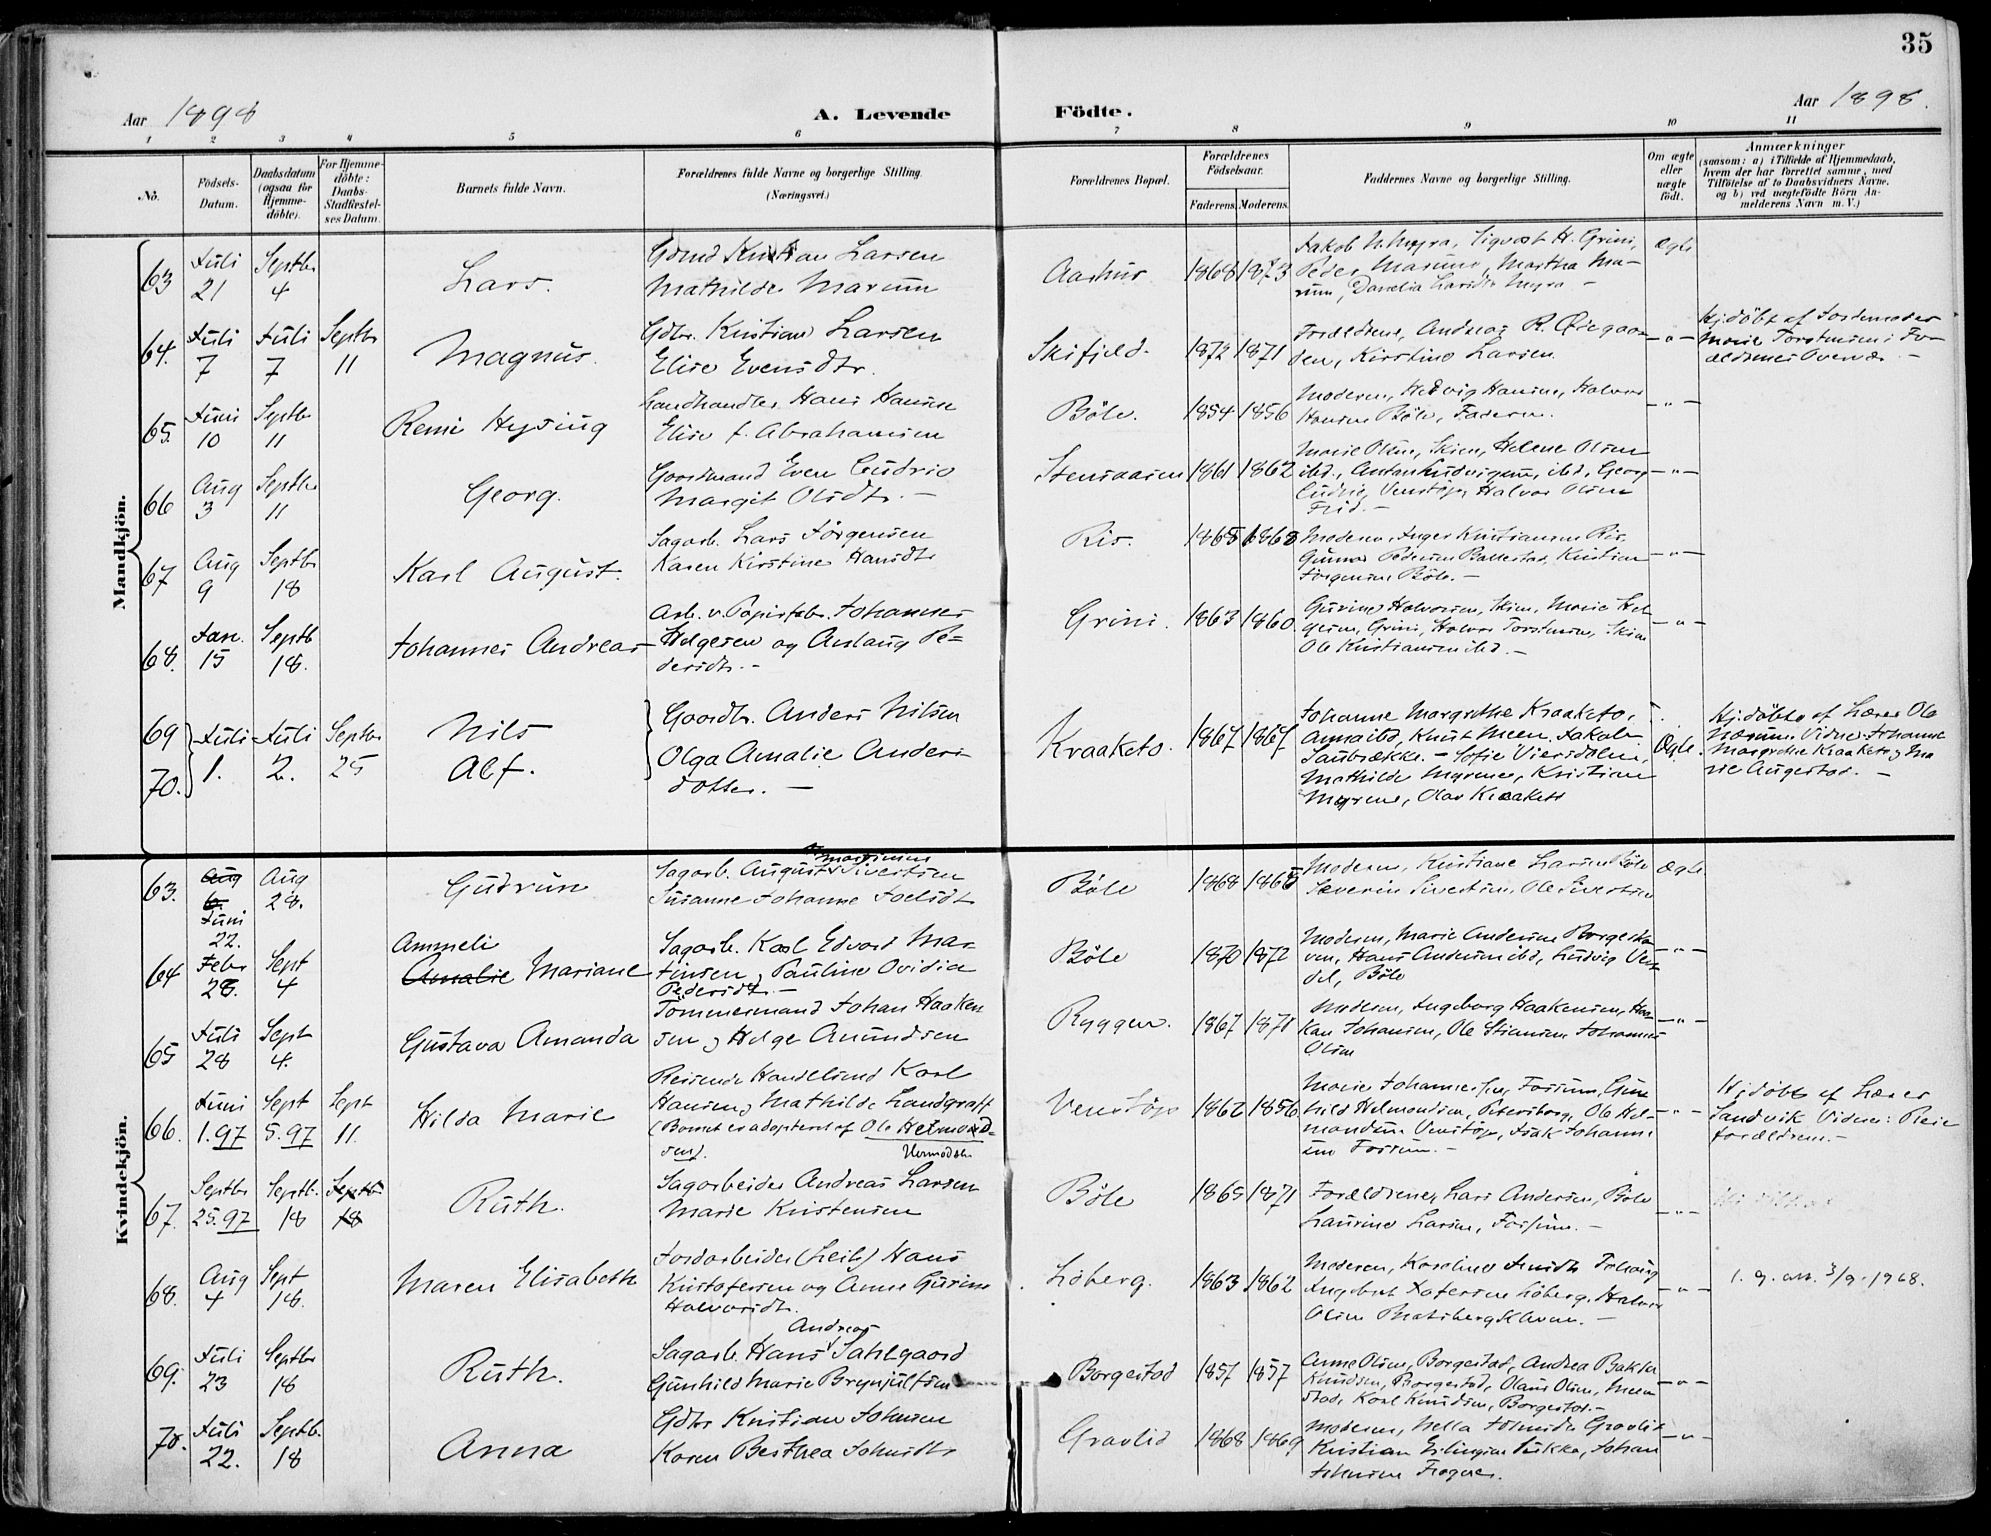 35
Aar 1898
A. Levende
Födte.
Aar 1898.
1 2 3 4 5 6 7 8 9 10 11
No.
Födsels-Datum.
Daabsdatum (ogsaa for Hjemme-döbte).
For Hjemme-döbte: Daabs-Stadfæstel-ses Datum.
Barnets fulde Navn.
Forældrenes fulde Navne og borgerlige Stilling.
(Næringsvei.)
Forældrenes Bopæl.
Forældrenes Födselsaar.
Faderens. Moderens.
Faddernes Navne og borgerlige Stilling.
Om ægte eller uægte födt.
Anmærkninger
(saasom: a) i Tilfælde af Hjemmedaab,
hvem der har forrettet samme, med
Tilföielse af to Daabsvidners Navne,
og b) ved uægtefödte Börn An-
melderens Navn m. V.)
Mandkjön.
63 Juli 21 Septbr 4 Lars.
Gdmd Kristian Larsen
Mathilde Marum
Aarhus 1868 1873
Jakob N. Myra, Sigvart H. Grini,
Peder Marum, Martha Ma-
rum, Myra -
Ægte
64. Juli 7 Juli 7 Septbr 11 Magnus.
Gdbr. Kristian Larsen
Elise Evensdtr.
Skifjeld. 1872 1871
Forældrene, Andreas R.
den, Kirstine Larsen
- " -
Hj.döbt af Jordemoder
Marie Torstensen i For-
ældrenes Overvær. -
65. Juni 10 Septbr 11 Remi Hysing
Landhandler Hans Hansen
Elise f. Abrahamsen
Böle. 1854 1856
Moderen, Hedvig Hansen, Halvor
Hansen Böle, Faderen.
- " -
66 Aug 3 Septbr 11 Georg.
Goordmand Even Ludvig
Margit Olsdtr. -
1861 1862
Marie Olsen, Skien, Helene Olsen
ibd., Anton Ludvigsen, ibd, Georg
Ludvig, Venstöp, Halvor Olsen
- " -
67 Aug 9 Septbr 18 Karl August.
Sagarb. Lars Jörgensen
Karen Kirstine Hansdtr
Ris. 1865 1868
Moderen, Inger Kristiansen Ris,
Gunnar Pedersen Ballestad, Kristian
Jörgensen Böle. -
- " -
68. Jan. 15 Septb 18. Johannes Andreas
Arb. v. Papirfabr. Johannes
Helgesen og Aslaug Pe-
dersdtr. -
Grini. 1863 1860
Gurine Halvorsen, Skien, Marie Hel-
gesen, Grini, Halvor Torstensen, Skien
Ole Kristiansen ibd. -
- " -
69 70. Juli 1. Juli 2. Septbr 25
Nils
Alf.
Goordbr. Anders Nilsen
Olga Amalie Anders-
dotter. -
Kraaketo. 1867 1867
Johanne Margrethe Kraaketo,
Anna ibd, Knut Meen, Jakob
Saubrække. - Sofie Viersdalen,
Mathilde Myrene, Kristian
Myrene, Olav Kraaketo
Ægte.
Hj.döbte af Lærer Ole
Næsum. Vidner: Johanne
Margrethe Kraaketo, Ma-
rie Augestad. -
Kvindekjön.
63. Aug 6. Juni 22. Aug 28. Gudrun
Martinius
Sagarb. August Sivertsen
Susanne Johanne Joelsdtr
Böle 1868 1865
Moderen, Kristiane Larsen Böle
Severin Sivertsen, Ole Sivertsen
Ægte
64 Febr 28. Sept 4
Ammeli
Amalie Mariane
Sagarb. Karl Edvard Mar-
tinsen, Pauline Ovidia
Pedersdtr. -
Böle 1870 1872
Moderen, Marie Andersen Borgeska-
ven, Hans Andersen ibd, Ludvig
Böle
- " -
65 Juli 28 Sept 4. Gustava Amanda
Tömmermand Johan Haaken-
sen, Helge Amundsen
Ryggen. 1867 1871
Moderen, Ingeborg Haakensen, Haa-
kan Johansen, Ole Stiansen, Johannes
Olsen
- " -
66. Juni 1.97 Sept 5.97 Sept 11. Hilda Marie
Reisende Handelsmd Karl
Hansen, Mathilde Landgraff
(Barnet er adopteret af Ole Helmond-
sen).
Venstöp 1862 1856
Marie Johannessen, Fossum, Gun-
hild Helmondsen, Petersborg, Ole Hel-
mondsen Venstöp, Isak Johannes-
sen Fossum. -
- " -
Hj.döbt af Lærer
Sandvik Vidner: Pleie
forældrene. -
67. Septbr 25.97 Septb. 18 Septbr. 18 Ruth.
Sagarbeider Andreas Larsen
Marie Kristensen
Böle 1865 1871
Forældrene, Lars Andersen, Böle
Laurine Larsen, Fossum. -
- " -
68. Aug 4 Sept 18. Maren Elisabeth
Jordarbeider (Leil.) Hans
Kristofersen og Anne Gurine
Halvorsdtr.
Löberg. 1863 1862
Moderen, Karoline
Löberg, Halvor
Olsen Klovan. -
- " -
1. g. att. 3/9. 1968.
69. Juli 23 Septbr 18 Ruth.
Andreas
Sagarb. Hans Sahlgaard
Gunhild Marie Brynjulfsen
Borgestad 1857 1857
Anne Olsen, Borgestad, Andrea Bakke
Knudsen, Borgestad, Olaus Olsen, Meen-
stad, Karl Knudsen, Borgestad. -
- " -
70. Juli 22. Septb. 18 Anna
Gdbr Kristian Johnsen
Karen Berthea Johnsdtr
Gravlid 1868 1869
Moderen, Nella Johnsdtr Gravlid
Kristian Erlingsen Fukka, Johan
Johnsen Fragnes.
- " -